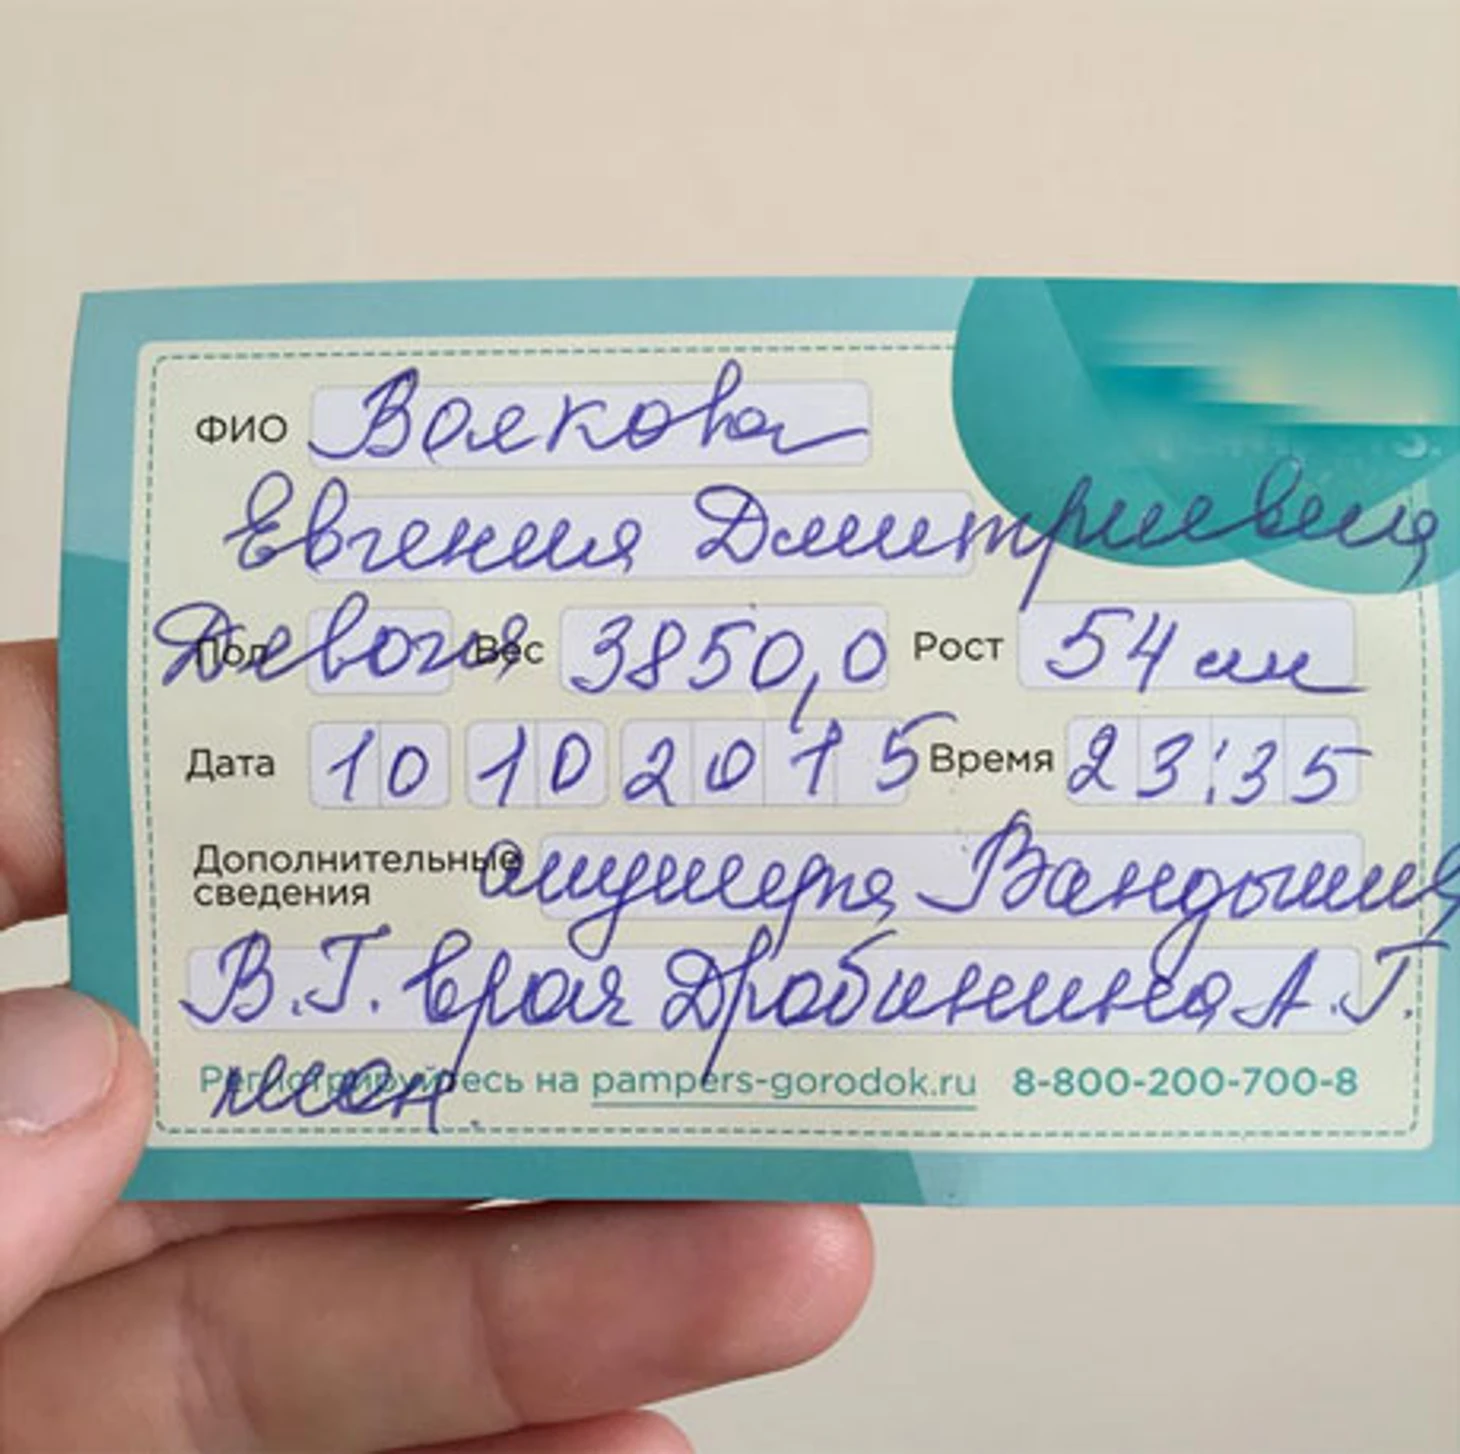 ФИО Волкова
Евгения Дмитриевна
Пол Девочка Вес 3850,0 Рост 54 см
Дата 10 10 2015 Время 23:35
Дополнительные сведения акушерка Вандышина
В.Г. врач Дробинина А.Г.
Регистрируйтесь на pampers-gorodok.ru 8-800-200-700-8